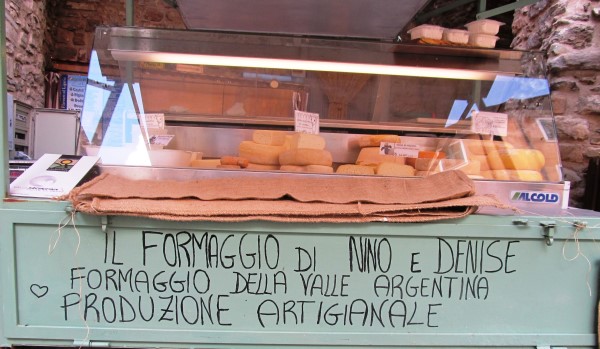 ALCOLD
IL FORMAGGIO DI NINO E DENISE
FORMAGGIO DELLA VALLE ARGENTINA
PRODUZIONE ARTIGIANALE